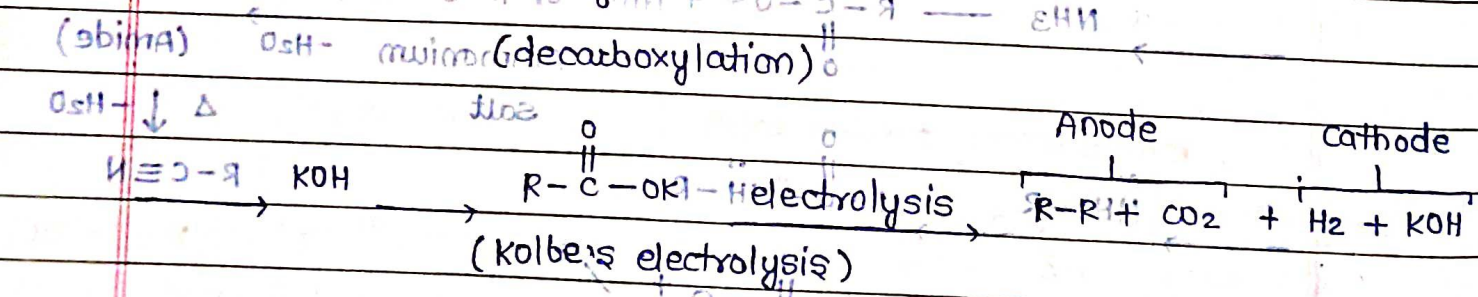 (decarboxylation)
Anode Cathode
O
||
KOH R-C-OK electrolysis R-R + CO2 + H2 + KOH
(Kolbe's electrolysis)